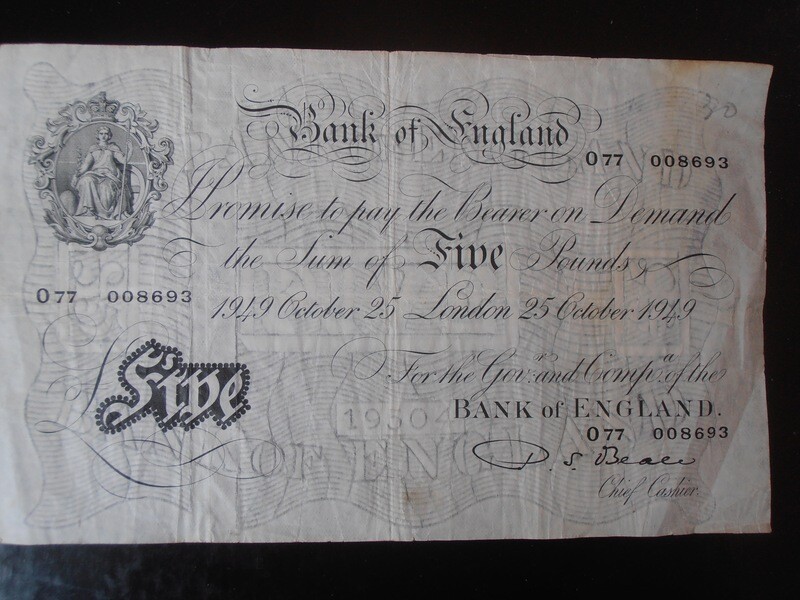 Bank of England
O77 008693
30
I Promise to pay the Bearer on Demand
the Sum of Five Pounds
O77 008693
1949 October 25 London 25 October 1949
For the Govr. and Compa. of the
£Five
BANK of ENGLAND.
O77 008693
OF ENG
D. S. Beale
Chief Cashier